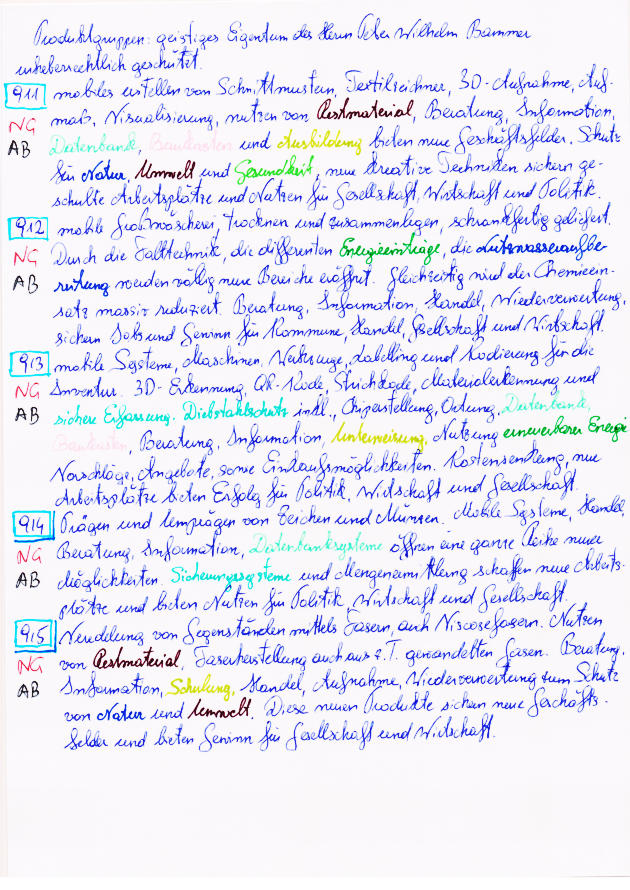 Produktgruppen: geistiges Eigentum des Herrn Peter Wilhelm Bammer
urheberrechtlich geschützt.
911 mobiles erstellen von Schnittmustern, Textilzeichner, 3D-Aufnahme, Auf-
NG maß, Visualisierung, nutzen von Restmaterial, Beratung, Information,
AB Datenbank, Baukasten und Ausbildung bieten neue Geschäftsfelder. Schutz
für Natur, Umwelt und Gesundheit, neue kreative Techniken sichern ge-
schulte Arbeitsplätze und Nutzen für Gesellschaft, Wirtschaft und Politik.
912 mobile Großwäscherei, trocknen und zusammenlegen, schrankfertig geliefert.
NG Durch die Falttechnik, die differenten Energieeinträge, die Nutzwasseraufbe-
AB reitung werden völlig neue Bereiche eröffnet. Gleichzeitig wird der Chemieein-
satz massiv reduziert. Beratung, Information, Handel, Wiederverwertung,
sichern Jobs und Gewinn für Kommune, Handel, Gesellschaft und Wirtschaft.
913 mobile Systeme, Maschinen, Werkzeuge, Labelling und Kodierung für die
NG Inventur. 3D-Erkennung, QR-Kode, Strichkode, Materialerkennung und
AB sichere Erfassung. Diebstahlschutz inkl., Chiperstellung, Ortung, Datenbank,
Baukasten, Beratung, Information, Unterweisung, Nutzung erneuerbarer Energie
Vorschläge, Angebote, sowie Einkaufsmöglichkeiten. Kostensenkung, neue
Arbeitsplätze bieten Erfolg für Politik, Wirtschaft und Gesellschaft.
914 Prägen und Umprägen von Zeichen und Münzen. Mobile Systeme, Handel,
NG Beratung, Information, Datenbanksysteme öffnen eine ganze Reihe neuer
AB Möglichkeiten. Sicherungssysteme und Mengenermittlung schaffen neue Arbeits-
plätze und bieten Nutzen für Politik, Wirtschaft und Gesellschaft.
915 Veredelung von Gegenständen mittels Fasern, auch Viscosefasern. Nutzen
NG von Restmaterial, Faserherstellung auch aus z.T. gewandelten Gasen. Beratung,
AB Information, Schulung, Handel, Aufnahme, Wiederverwertung zum Schutz
von Natur und Umwelt. Diese neuen Produkte sichern neue Geschäfts-
felder und bieten Gewinn für Gesellschaft und Wirtschaft.